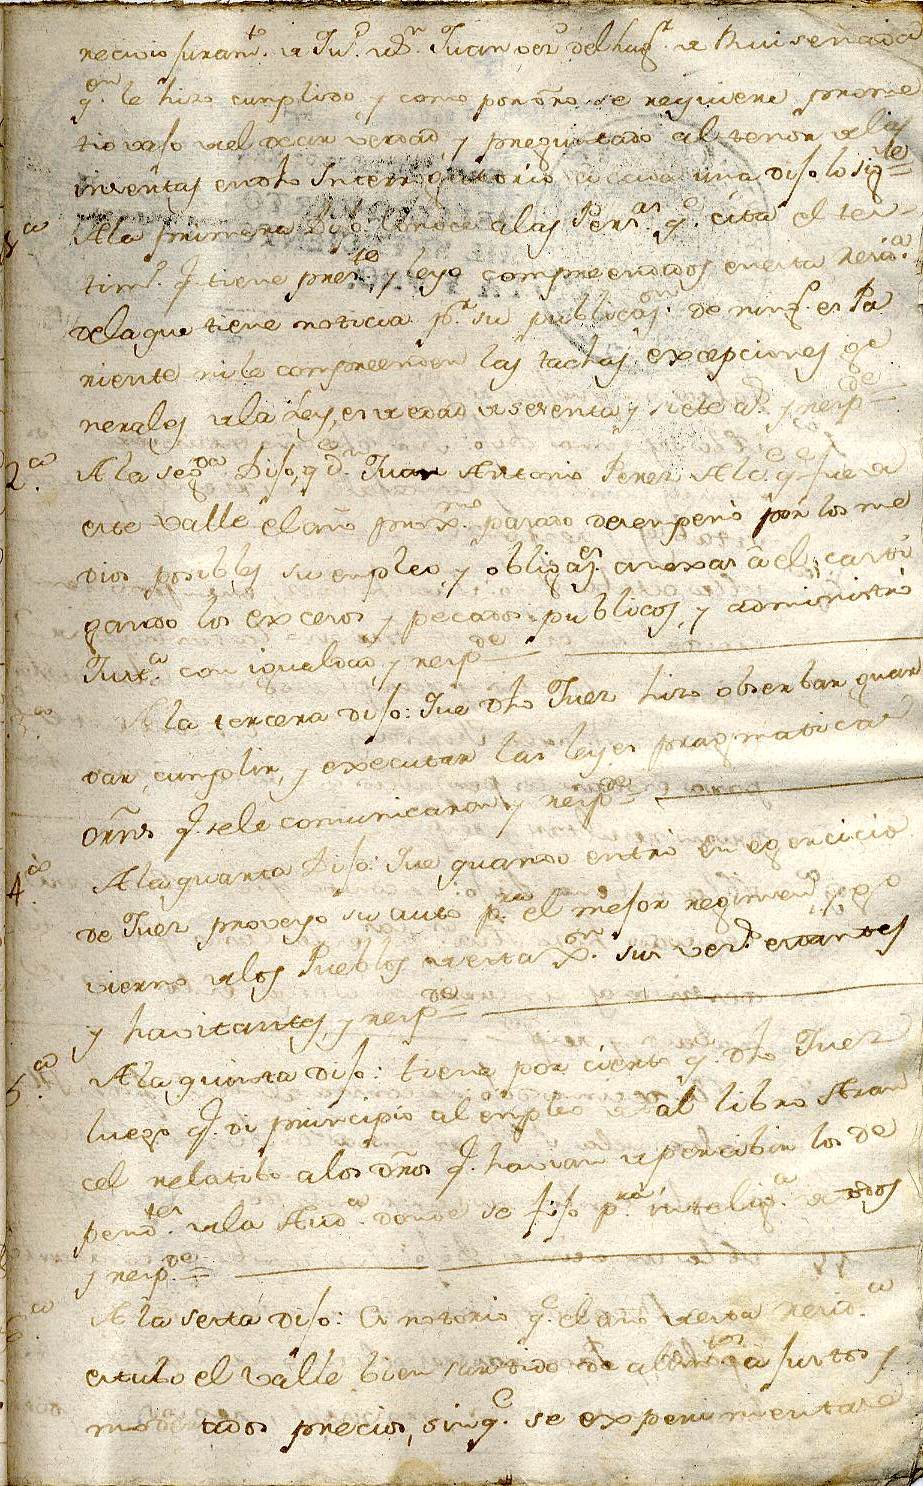 recivio juram.to de Ju.n Juan del lug.r de Ruiseñada
q.n le hizo cumplido, y como por dro. se requiere prome
tio vajo de el decir verdad, y preguntado al tenor de las
insertas en dho Interrogatorio a cada una dijo lo sig.te=
1.a A la primera Dijo conoce a las Pers.as q.e cita el tes-
tim.o q. tiene pres.te y leyo comprendidos en esta Resid.a
de la que tiene noticia p.r su publicas.on de ning.o es Pa
riente ni le comprenden las tachas excepciones ge
nerales de la Ley, en de edad de setenta y siete a.s y resp.de
2.a A la seg.da Dijo, q.e d.n Juan Antonio Perez Alc.e q. fue de
este Valle el año prox.mo pasado desempeño por los me
dios posibles su empleo, y obligas.es anexas â el, casti
gando los excesos y pecados publicos, y administró
Just.a con igualdad, y resp.de
3.a A la tercera dijo: Que dho Juez hizo obserbar guar
dar, cumplir, y executar las leyes pragmaticas
orñs q. se le comunicaron, y resp.de
4.a A la quarta Dijo: Que quando entró en egercicio
de Juez proveyo su auto p.ra el mejor regimen, y go
vierno de los Pueblos de esta Jx.on sus vez.s estantes
y havitantes, y resp.de
5.a A la quinta dijo: tiene por cierto q. dho Juez
luego q. di principio al empleo al libro Aran
cel relatibo a los dros q. havian de percibir los de
pend.tes de la Aud.a donde se fijo p.ra intelig.a de todos
y resp.de
6.a A la sexta dijo: Es notorio q.e el año de esta resid.a
estubo el Valle bien surtido de a justos y
moderados precios, sin q.e se experimentase